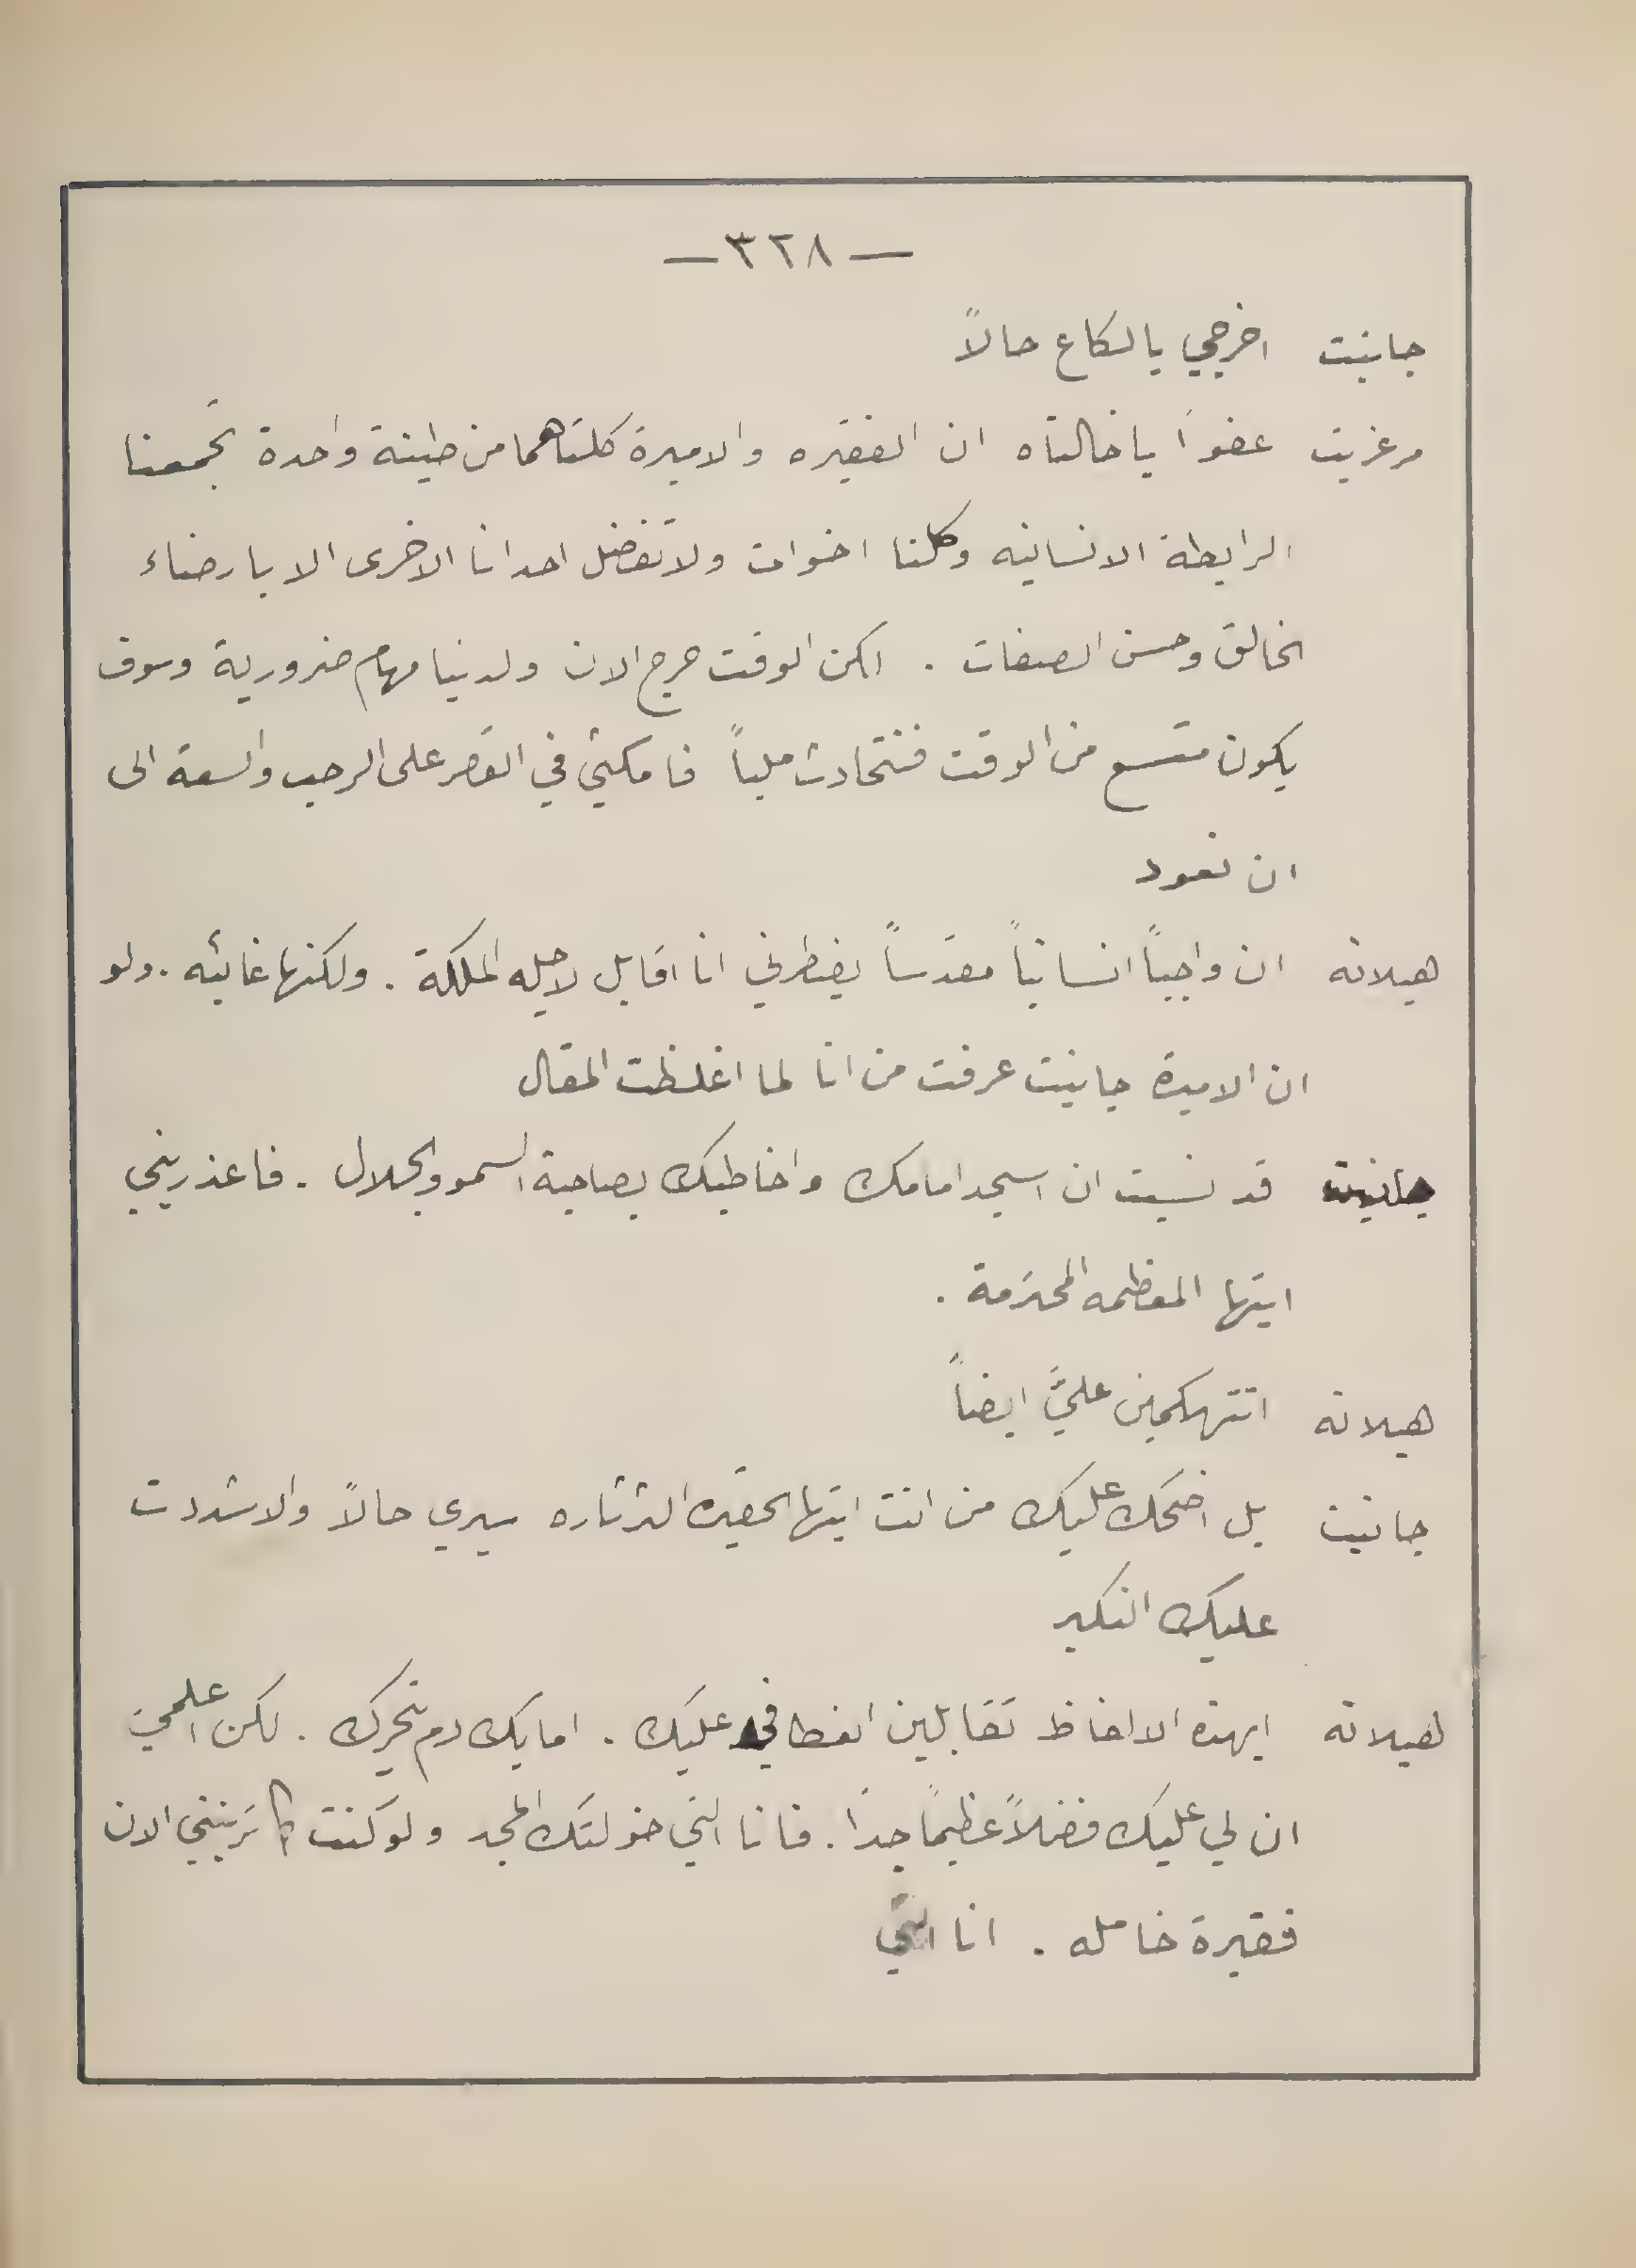 — ٣٢٨ —
جانيت اخرجي يا لكاع حالاً
مرغريت عفواً يا خالتاه ان الفقيره والاميرة كلتاهما من طينة واحدة تجمعنا
الرابطة الانسانيه وكلنا اخوات ولا تفضل احدانا الاخرى الا بارضاء
الخالق وحسن الصفات . لكن الوقت حرج الان ولدينا مهام ضرورية وسوف
يكون متسع من الوقت فنتحادث ملياً فامكثي في القصر على الرحب والسعة الى
ان نعود
هيلانه ان واجباً انسانياً مقدساً يضطرني انا اقابل لاجله الملكة . ولكنها غائبه . ولو
ان الاميرة جانيت عرفت من انا لما اغلظت المقال
جانيت قد نسيت ان اسجد امامك واخاطبك بصاحبة السمو والجلال . فاعذريني
ايتها المعظمه المحترمة .
هيلانه اتتهكمين عليَّ ايضاً
جانيت بل اضحك عليك من انت ايتها الحقيره الثرثاره سيري حالاً والا شددت
عليك النكير
هيلانه ابهذه الالفاظ تقابلين انعطافي عليك . اما بك دم يتحرك . لكن اعلمي
ان لي عليك فضلاً عظيماً جداً . فانا التي خولتك المجد ولو كنت كما ترينني الان
فقيرة خامله . انا التي